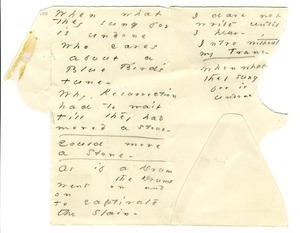 When what
they sung for
is undone
Who cares
about a
Blue Bird's
Tune -
Why, Resurrection
had to wait
till they had
moved a Stone -
Could move
a Stone -
As if a Drum
the Drums
went on and
on
to captivate
the slain -
I dare not
write until
I hear -
Intro without
my Trans -
When what
they sung
for is
undone